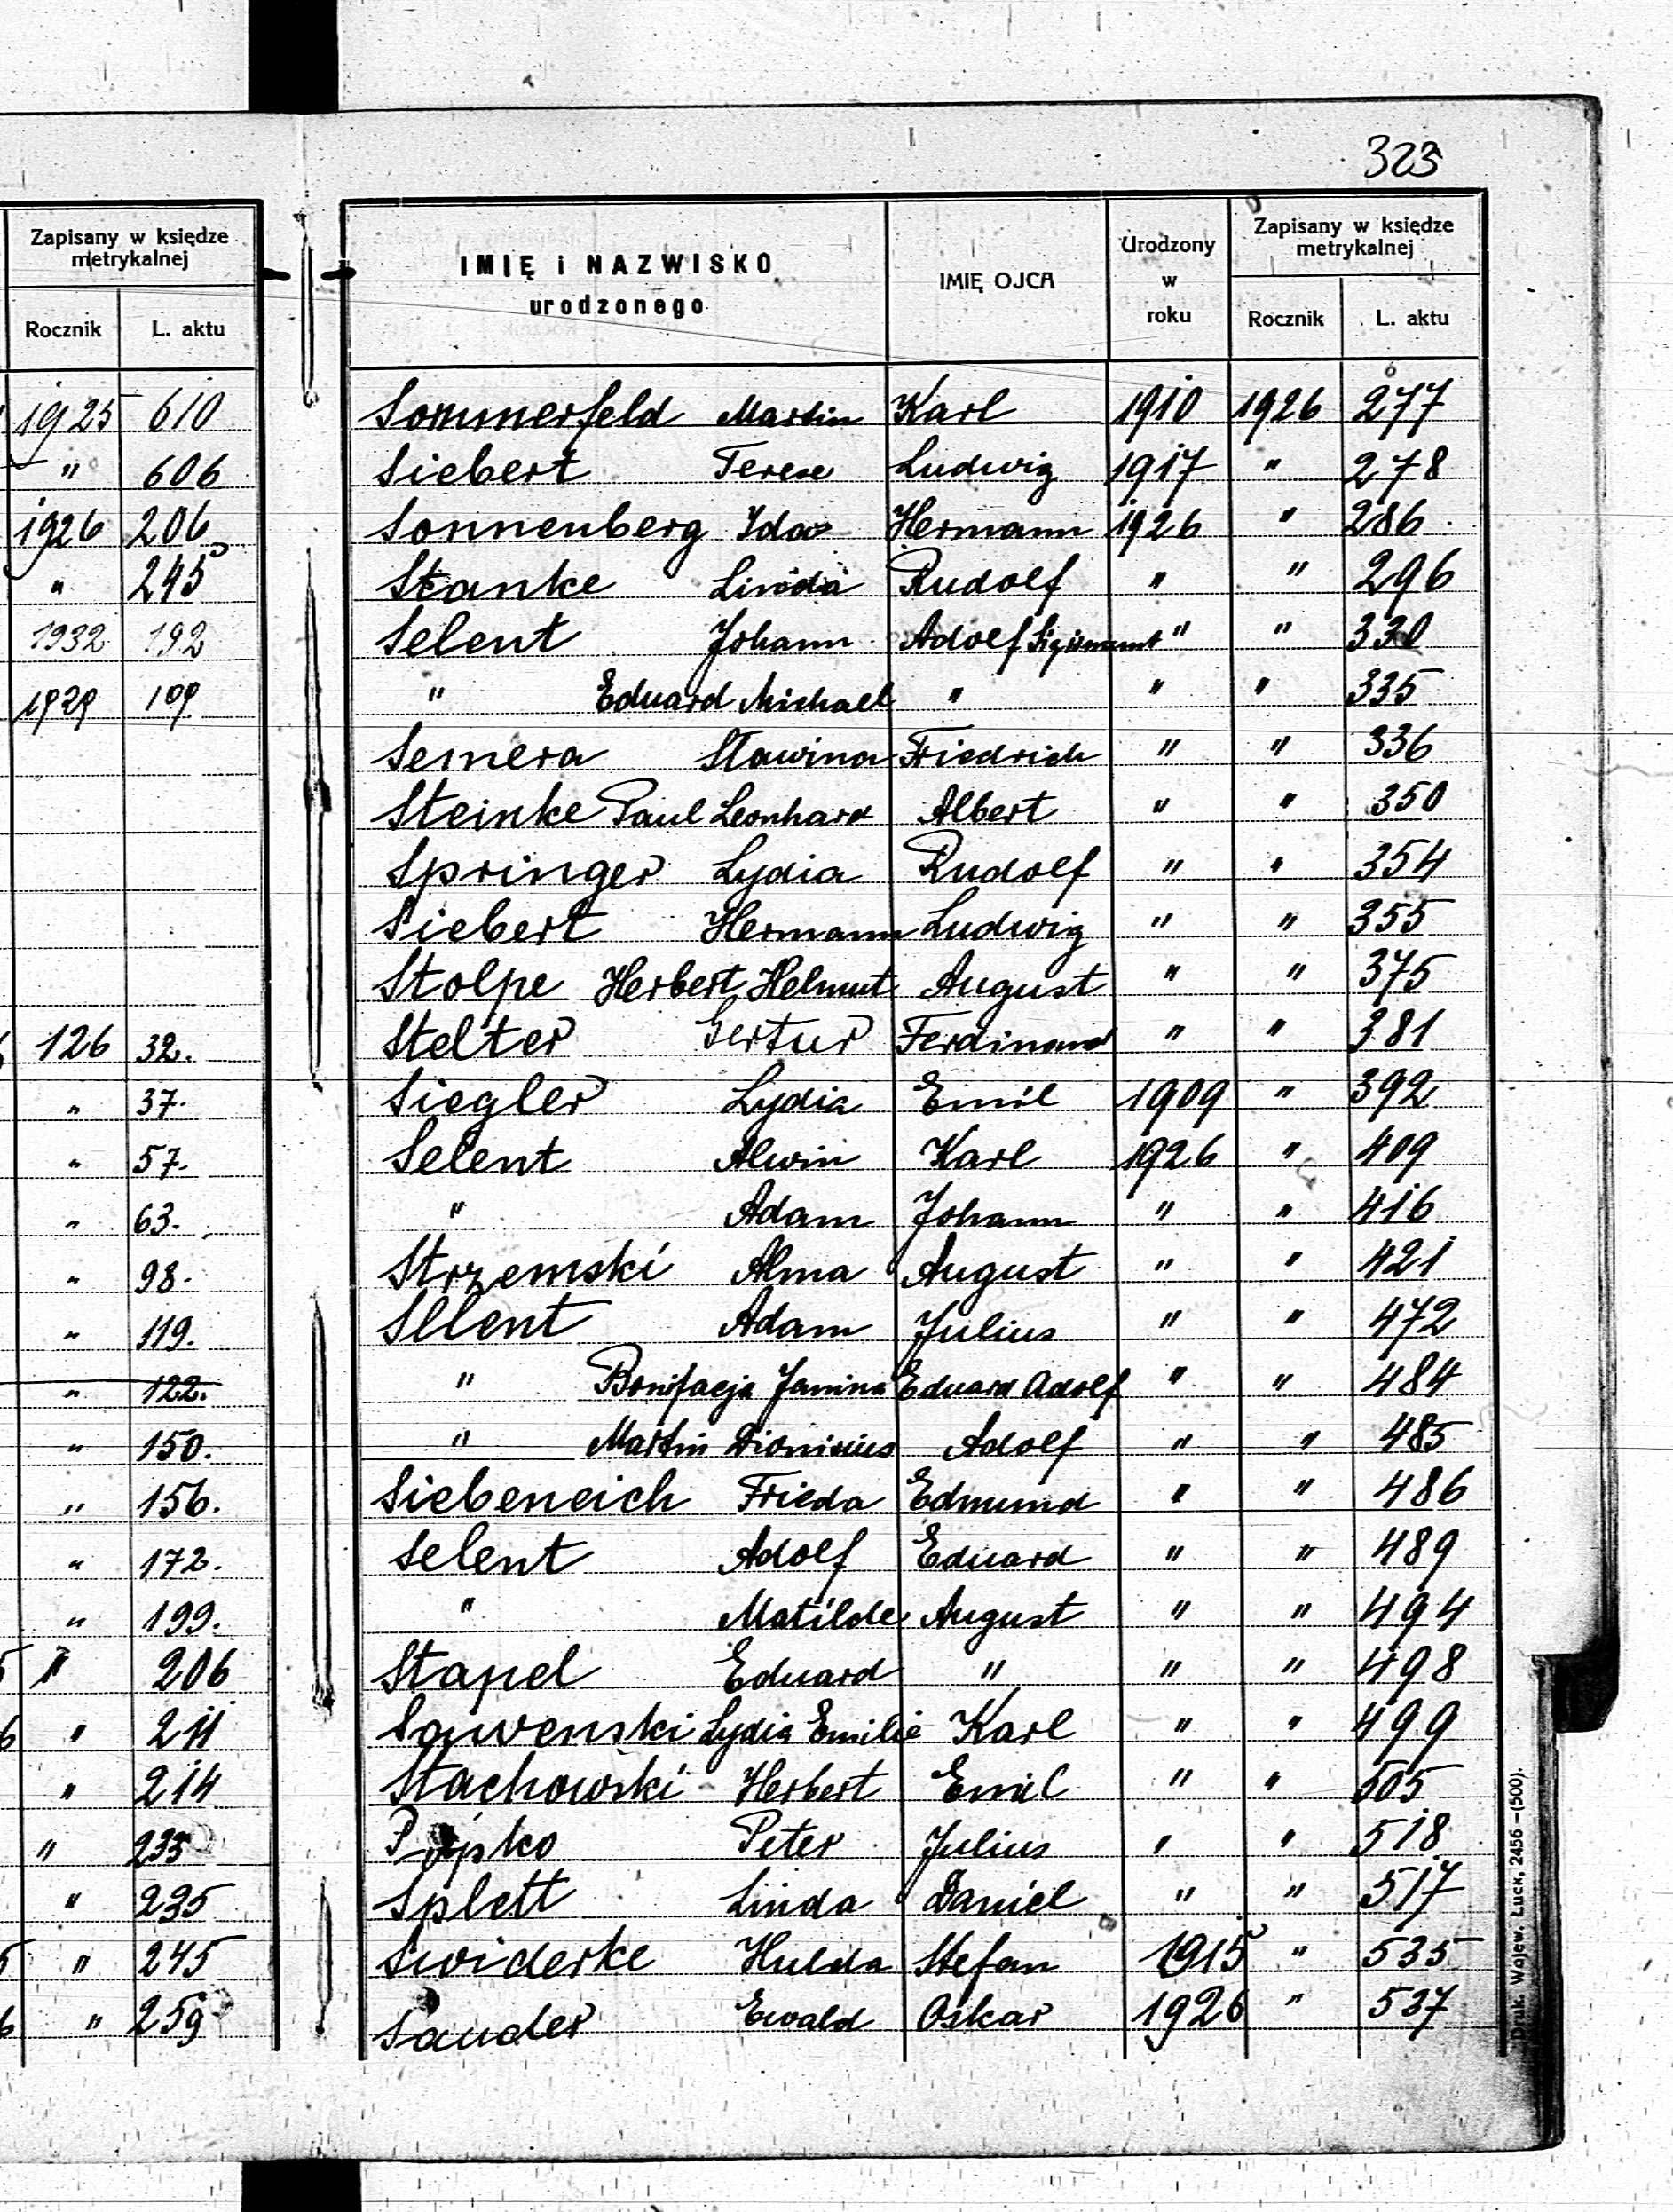 323
Zapisany w księdze
metrykalnej
Rocznik L. aktu
1925 610
" 606
1926 206
" 245
1932 192
1929 109
126 32.
" 37.
" 57.
" 63.
" 98.
" 119.
" 122.
" 150.
" 156.
" 172.
" 199.
" 206
" 211
" 214
" 235
" 235
" 245
" 259
IMIĘ i NAZWISKO
urodzonego
IMIĘ OJCA
Urodzony
w
roku
Zapisany w księdze
metrykalnej
Rocznik L. aktu
Sommerfeld Martin Karl 1910 1926 277
Siebert Terese Ludwig 1917 " 278
Sonnenberg Ida Hermann 1926 " 286
Stanke Linda Rudolf " " 296
Selent Johann Adolf Sigismunt " " 330
" Eduard Michael " " " 335
Semera Sławina Friedrich " " 336
Steinke Paul Leonhard Albert " " 350
Springer Lydia Rudolf " " 354
Siebert Hermann Ludwig " " 355
Stolpe Herbert Helmut August " " 375
Stelter Gertur Ferdinand " " 381
Siegler Lydia Emil 1909 " 392
Selent Alwin Karl 1926 " 409
" Adam Johann " " 416
Strzemski Alma August " " 421
Sellent Adam Julius " " 472
" Bonifacja Janina Eduard Adolf " " 484
" Martin Dionisius Adolf " " 485
Siebeneich Frieda Edmund " " 486
Selent Adolf Eduard " " 489
" Matilde August " " 494
Stapel Eduard " " " 498
Sawenski Lydia Emilie Karl " " 499
Stachowski Herbert Emil " " 505
Peter Julius " " 518
Splett Linda Daniel " " 517
Swiderke Hulda Stefan 1915 " 535
Sauder Ewald Oskar 1926 " 537
Druk. Wojew. Łuck, 2456 —(500).